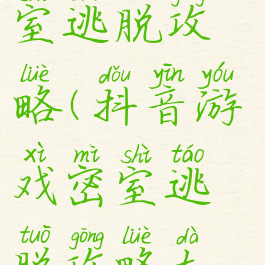 室逃脱攻
lüè dǒu yīn yóu
略(抖音游
xì mì shì táo
戏密室逃
tuō gōng lüè dà
脱攻略大